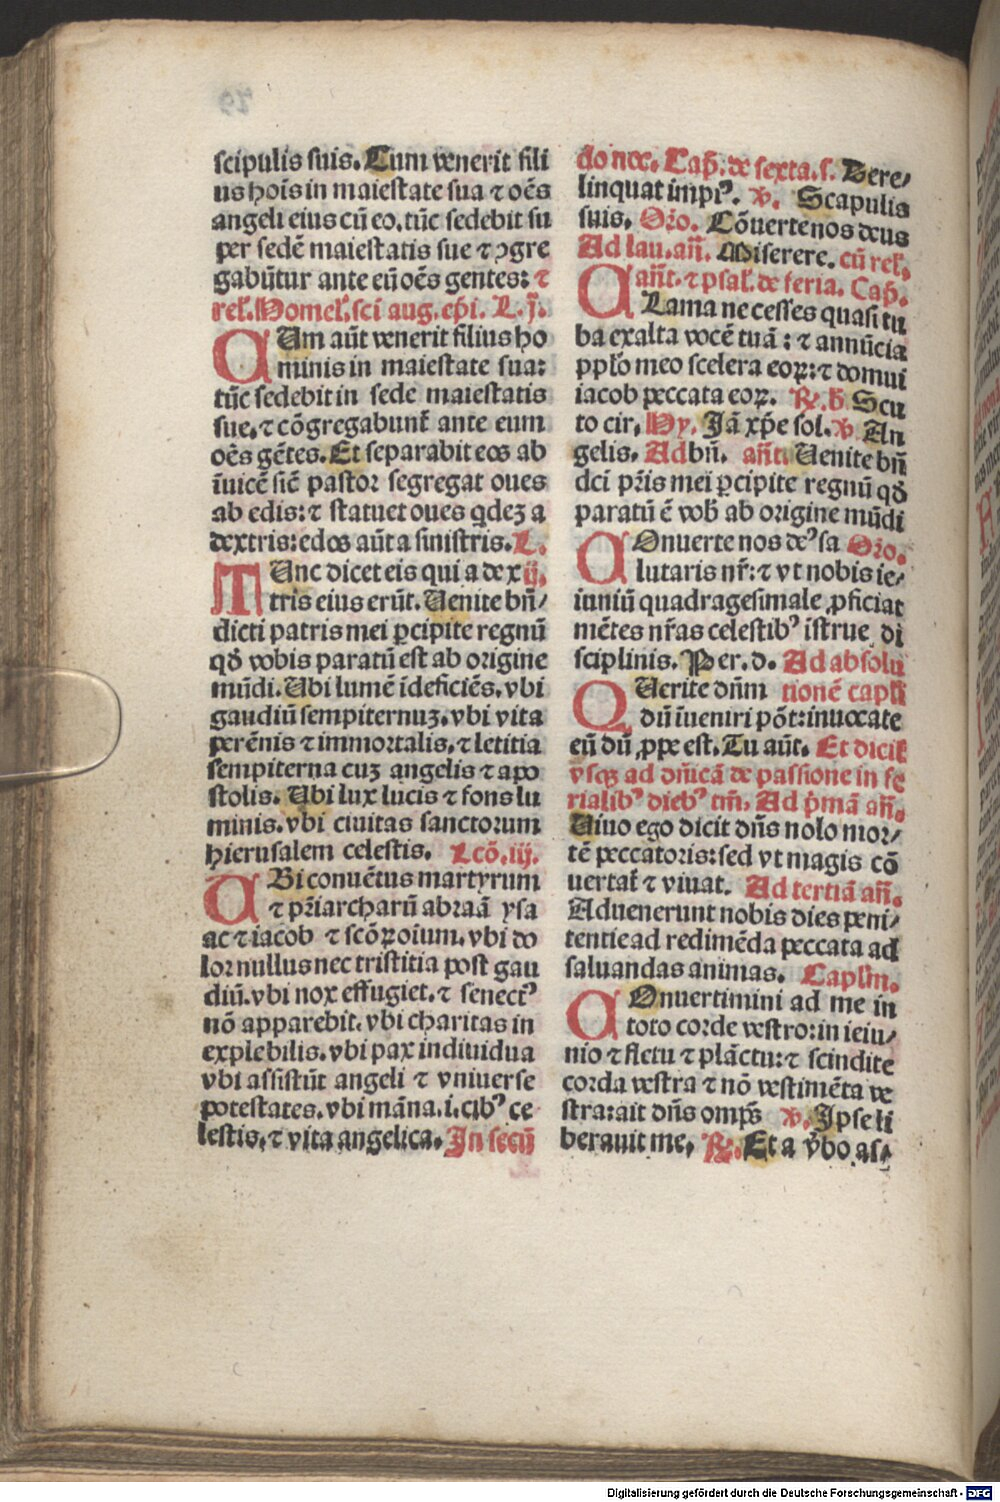 scipulis suis. Cum venerit fili
us hoīs in maiestate sua ⁊ oēs
angeli eius cū eo. tūc sedebit su
per sedē maiestatis sue ⁊ ↄgre
gabūtur ante eū oēs gentes: ⁊
rel̄. Homel̄. sci aug. ep̄i. L. j.
CUm aūt venerit filius ho
minis in maiestate sua:
tūc sedebit in sede maiestatis
sue, ⁊ cōgregabunt̄ ante eum
oēs gētes. Et separabit eos ab
īuicē sic̄ pastor segregat oues
ab edis: ⁊ statuet oues qdeʒ a
dextris: edos aūt a sinistris. L.
TUnc dicet eis qui a dex ij.
tris eius erūt. Uenite bn̄/
dicti patris mei ꝑcipite regnū
qđ vobis paratū est ab origine
mūdi. Ubi lumē īdeficiēs, vbi
gaudiū sempiternuʒ. vbi vita
perēnis ⁊ immortalis, ⁊ letitia
sempiterna cuʒ angelis ⁊ apo
stolis. Ubi lux lucis ⁊ fons lu
minis. vbi ciuitas sanctorum
hierusalem celestis. Lcō. iij.
UBi conuētus martyrum
⁊ pr̄iarcharū abraā ysa
ac ⁊ iacob ⁊ scōꝝ oium. vbi do
lor nullus nec tristitia post gau
diū. vbi nox effugiet. ⁊ senectꝰ
nō apparebit. vbi charitas in
explebilis. vbi pax indiuidua
vbi assistūt angeli ⁊ vniuerse
potestates. vbi māna. i. cibꝰ ce
lestis, ⁊ vita angelica. In secū
do noc. Cap̄. de sexta. s. Dere/
linquat impiꝰ. ꝟ. Scapulis
suis. Oro. Cōuerte nos deus
Ad lau. an̄. Miserere. cū rel̄.
an̄t. ⁊ psal̄. de feria. Cap̄.
CLama ne cesses quasi tu
ba exalta vocē tuā: ⁊ annūcia
pplo meo scelera eoꝝ: ⁊ domui
iacob peccata eoꝝ. ℞. b̄ Scu
to cir. Hy. Jā xp̄e sol. ꝟ An
gelis. Ad bn̄. an̄t. Uenite bn̄
dci pr̄is mei ꝑcipite regnū qđ
paratū ē vob̄ ab origine mūdi
COnuerte nos deꝰ sa Oro.
lutaris nr̄: ⁊ vt nobis ie/
iuniū quadragesimale ꝓficiat
mētes nr̄as celestibꝰ īstrue di
sciplinis. Per. d. Ad absolu
QUerite dn̄m tionē capl̄i
dū īueniri pōt: inuocate
eū dū ꝓpe est. Tu aūt. Et dicit̄
vsqʒ ad dn̄icā de passione in fe
rialibꝰ diebꝰ tm̄. Ad p̄mā an̄.
Uiuo ego dicit dn̄s nolo mor/
tē peccatoris: sed vt magis cō
uertat̄ ⁊ viuat. Ad tertiā an̄.
Aduenerunt nobis dies peni/
tentie ad redimēda peccata ad
saluandas animas. Capl̄m.
COnuertimini ad me in
toto corde vestro: in ieiu/
nio ⁊ fletu ⁊ plāctu: ⁊ scindite
corda vestra ⁊ nō vestimēta ve
stra: ait dn̄s omp̄s ꝟ. Ipse li
berauit me. ℞. Et a v̄bo as/
Digitalisierung gefördert durch die Deutsche Forschungsgemeinschaft - DFG